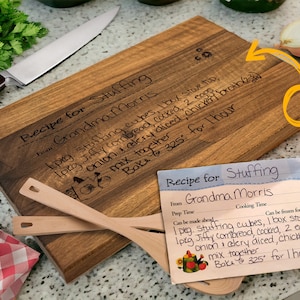 Recipe for Stuffing
from Grandma Morris
1 pkg stuffing cubes, 1 box stuf
1 pkg Jiffy cornbread cooked, 2 eggs
1 onion + celery diced, chicken broth
mix together
Bake @ 325° for 1 hour
Recipe for Stuffing
From Grandma Morris
Prep Time Cooking Time
Can be made ahead Can be frozen for
1 pkg stuffing cubes, 1 box st
1 pkg Jiffy cornbread cooked, 2
onion + celery diced, chick
mix together
Bake @ 325° for 1 h